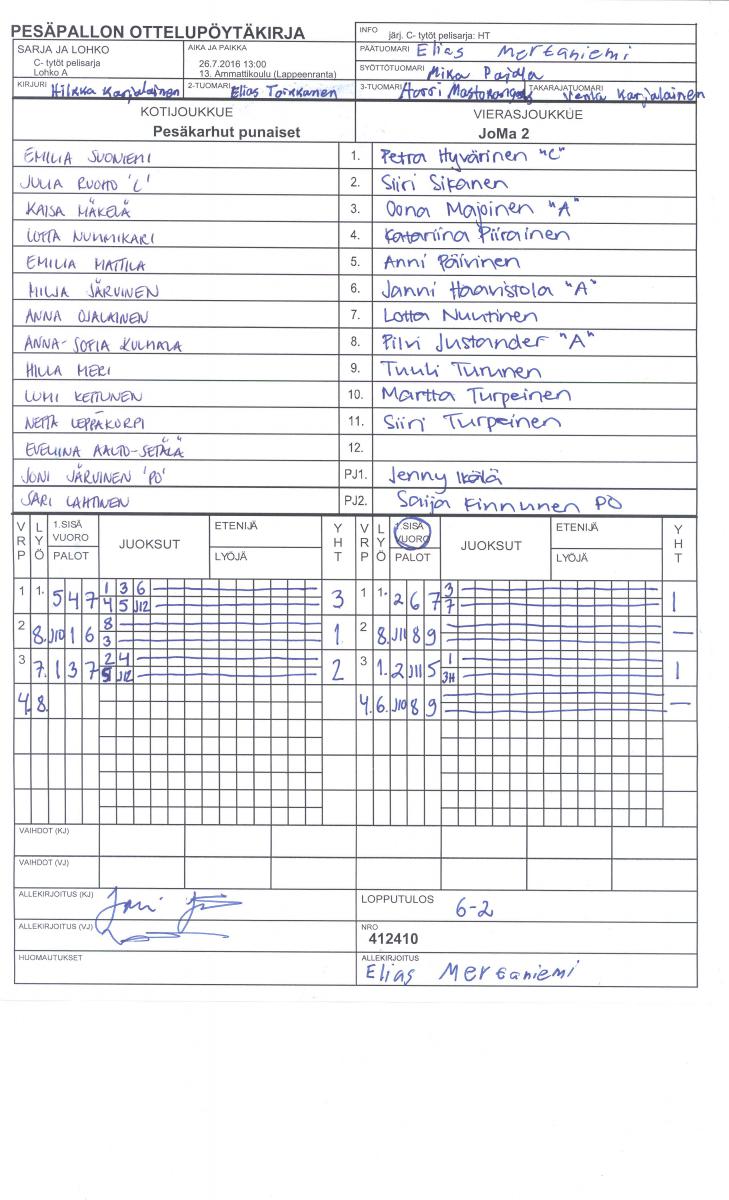 PESÄPALLON OTTELUPÖYTÄKIRJA
INFO järj. C- tytöt pelisarja: HT
SARJA JA LOHKO
C- tytöt pelisarja
Lohko A
AIKA JA PAIKKA
26.7.2016 13:00
13. Ammattikoulu (Lappeenranta)
PÄÄTUOMARI Elias Mertaniemi
SYÖTTÖTUOMARI Mika Pajula
KIRJURI Hilkka Karjalainen
2-TUOMARI Elias Toikkanen
3-TUOMARI Harri
TAKARAJATUOMARI Venla Karjalainen
KOTIJOUKKUE
Pesäkarhut punaiset
VIERASJOUKKUE
JoMa 2
EMILIA SUONIEMI 1. Petra Hyvärinen "C"
JULIA RUOHO 'C' 2. Siiri Sikanen
KAISA MÄKELÄ 3. Oona Majoinen "A"
LOTTA NUMMIKARI 4. Katariina Piirainen
EMILIA MATTILA 5. Anni Päivinen
MILJA JÄRVINEN 6. Janni Haavistola "A"
ANNA OJALAINEN 7. Lotta Nuutinen
ANNA-SOFIA KULMALA 8. Pilvi Justander "A"
HILLA MERI 9. Tuuli Turunen
LUMI KETTUNEN 10. Martta Turpeinen
NETTA LEPPÄKORPI 11. Siiri Turpeinen
EVELIINA AALTO-SETÄLÄ 12.
JONI JÄRVINEN 'PO' PJ1. Jenny Ikälä
SARI LAHTINEN PJ2. Saija Kinnunen PO
VRP LYÖ 1.SISÄ VUORO PALOT JUOKSUT ETENIJÄ LYÖJÄ YHT VRP LYÖ 1.SISÄ VUORO PALOT JUOKSUT ETENIJÄ LYÖJÄ YHT
1 1. 5 4 7 1 3 6 3 1 1. 2 6 7 3 1
4 5 J12 7
2 8. J10 1 6 8 1 2 8. J11 8 9 —
3
3 7. 1 3 7 2 4 2 3 1. 2 J11 5 1 1
5 J12 3H
4. 8. 4. 6. J10 8 9 —
VAIHDOT (KJ)
VAIHDOT (VJ)
ALLEKIRJOITUS (KJ)
LOPPUTULOS 6-2
ALLEKIRJOITUS (VJ)
NRO
412410
HUOMAUTUKSET
ALLEKIRJOITUS
Elias Mertaniemi